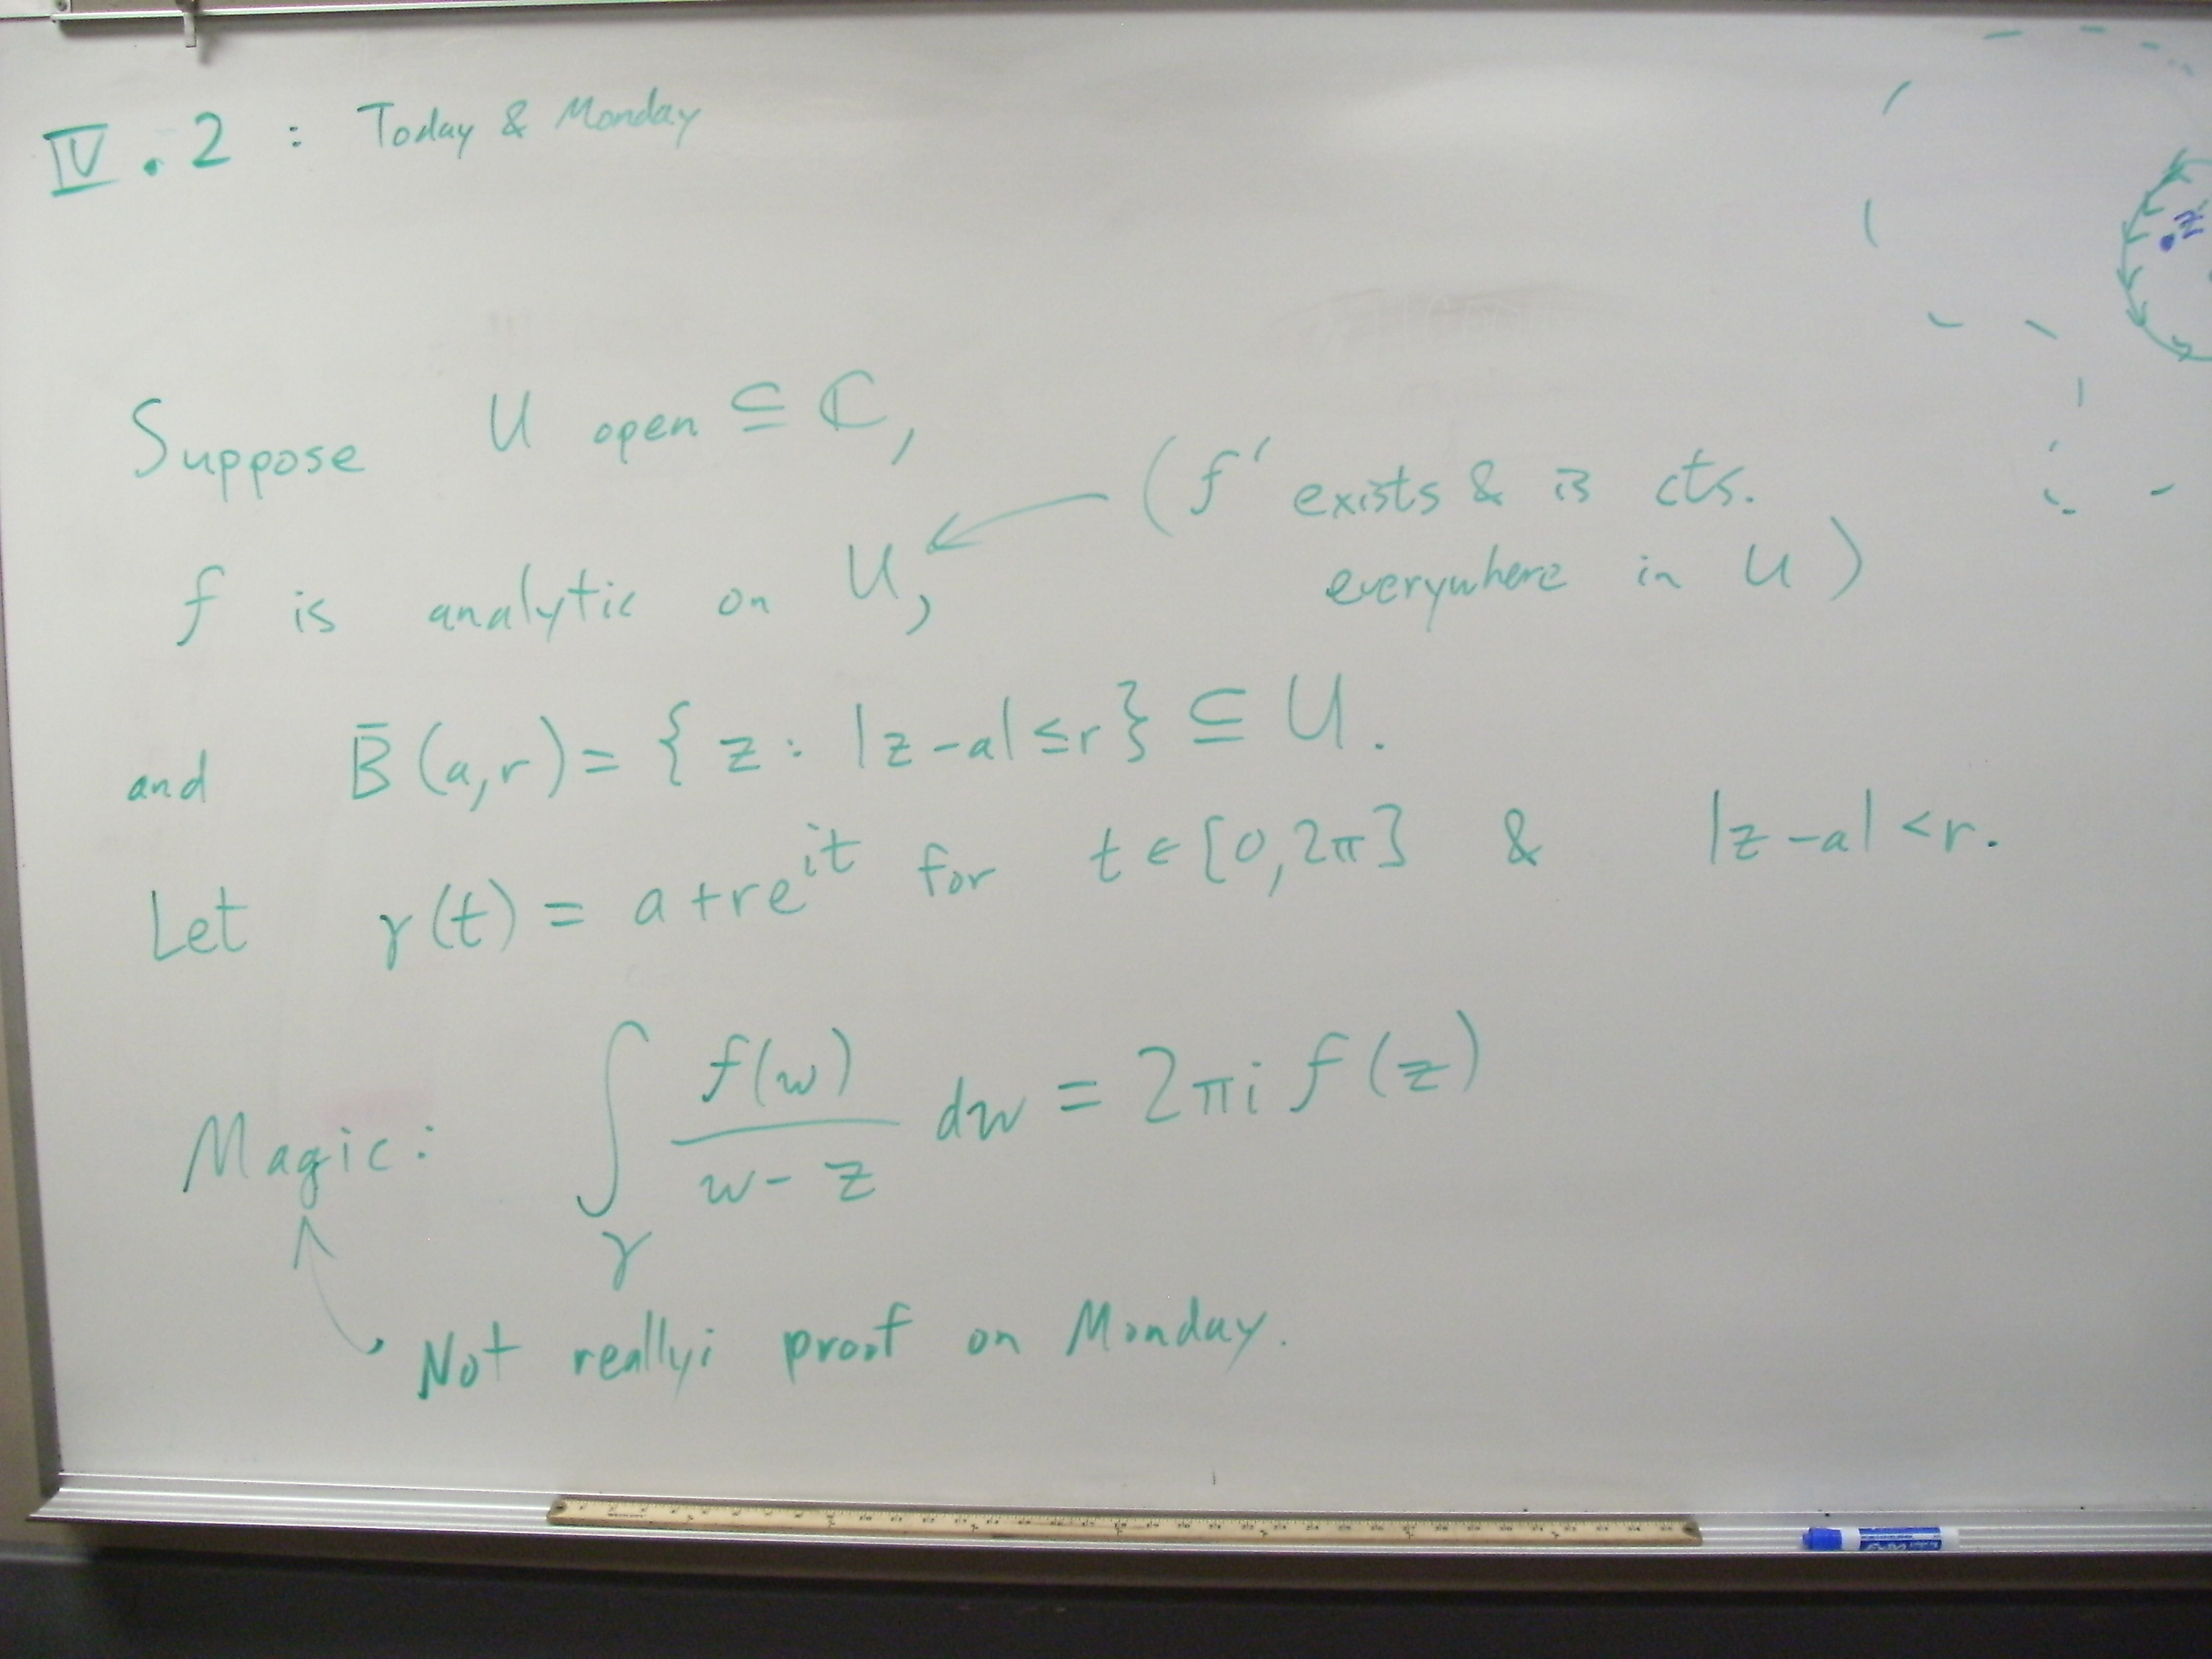 IV.2 : Today & Monday
Suppose U open ⊆ ℂ,
f is analytic on U,
(f′ exists & is cts.
everywhere in U)
and B̄(a,r) = { z : |z-a| ≤ r } ⊆ U.
Let γ(t) = a+re^{it} for t ∈ [0,2π] & |z-a| < r.
Magic: ∫_γ f(w)/(w-z) dw = 2πi f(z)
Not really; proof on Monday.
.z